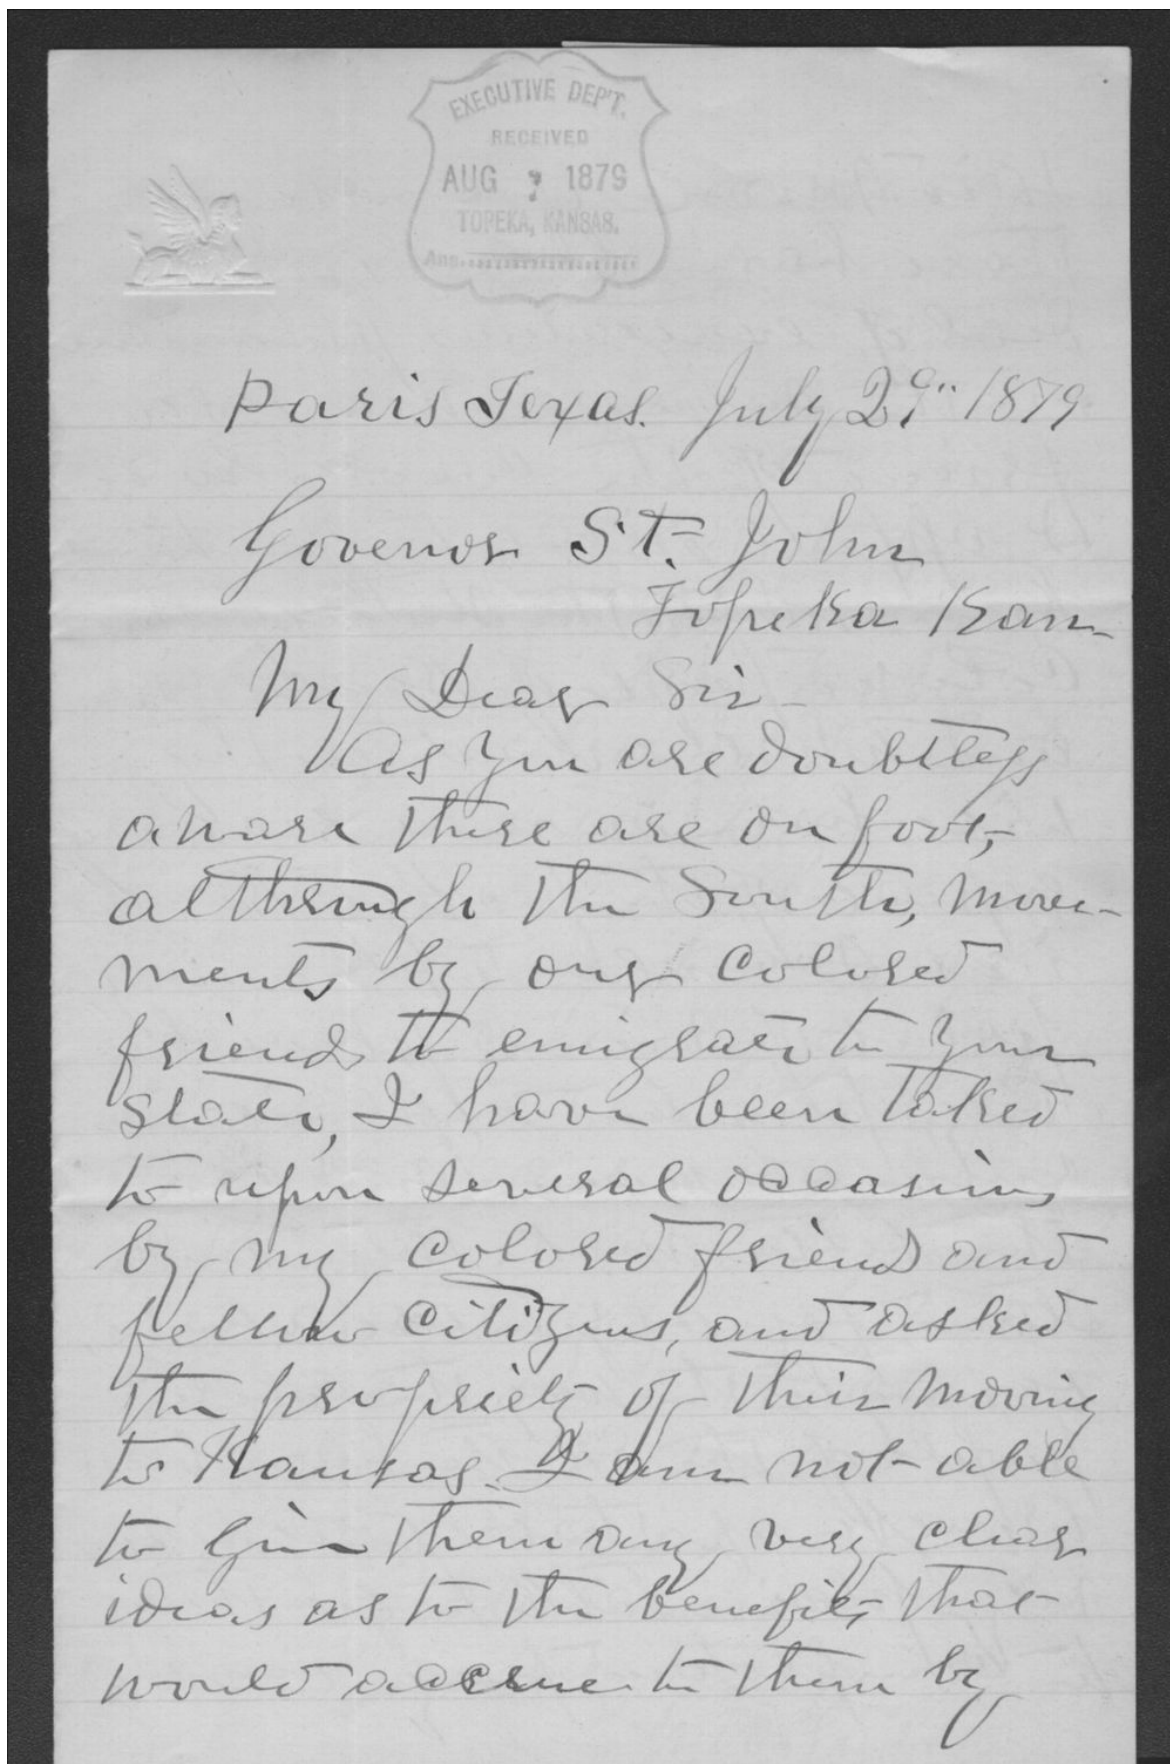 EXECUTIVE DEP'T.
RECEIVED
AUG 1879
TOPEKA, KANSAS.
Ans.
Paris Texas. July 29" 1879
Govenor St. John
Topeka Kan-
My Dear Sir-
As you are doubtless
aware there are on foot,
although the South, move-
ments by our colored
friends to emigrate to your
state, I have been talked
to upon several occasions
by my colored friends and
fellow citizens, and asked
the propriety of their moving
to Kansas. I am not able
to give them any very clear
ideas as to the benefits that
would accrue to them by